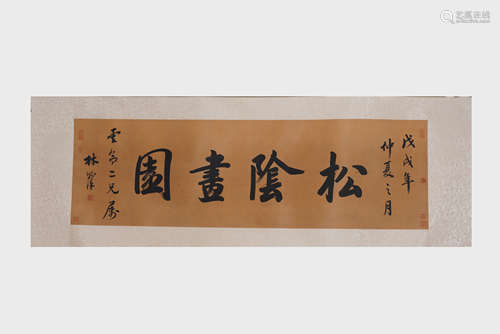 戊戌年
仲夏之月
松陰畫園
雲亭二兄屬
林則徐